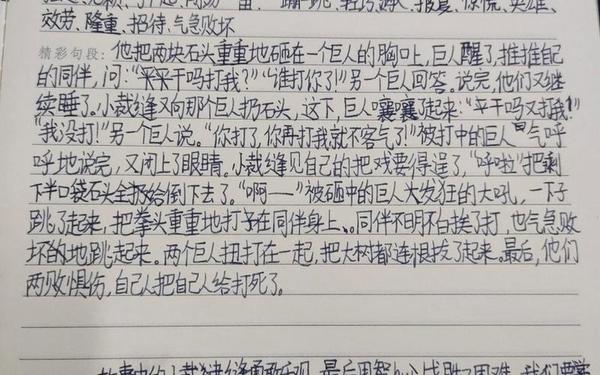 效劳、隆重、招待、气急败坏
精彩句段：他把两块石头重重地砸在一个巨人的胸口上，巨人醒了，推推自己
的同伴，问：“干吗打我？”“谁打你了！”另一个巨人回答。说完，他们又继
续睡了。小裁缝又向那个巨人扔石头，这下，巨人嚷嚷了起来：“干吗又打我！”
“我没打！”另一个巨人说。“你打了，你再打我就不客气了！”被打中的巨人气呼
呼地说完，又闭上了眼睛。小裁缝见自己的把戏要得逞了，“呼啦”把剩
下半口袋石头全扔给倒下去了。“啊——”被砸中的巨人大发狂的大吼，一下子
跳了起来，把拳头重重地打在同伴身上、。同伴不明不白挨了打，也气急败
坏的地跳起来。两个巨人扭打在一起，把大树都连根拔了起来。最后，他们
两败惧伤，自己人把自己人给打死了。